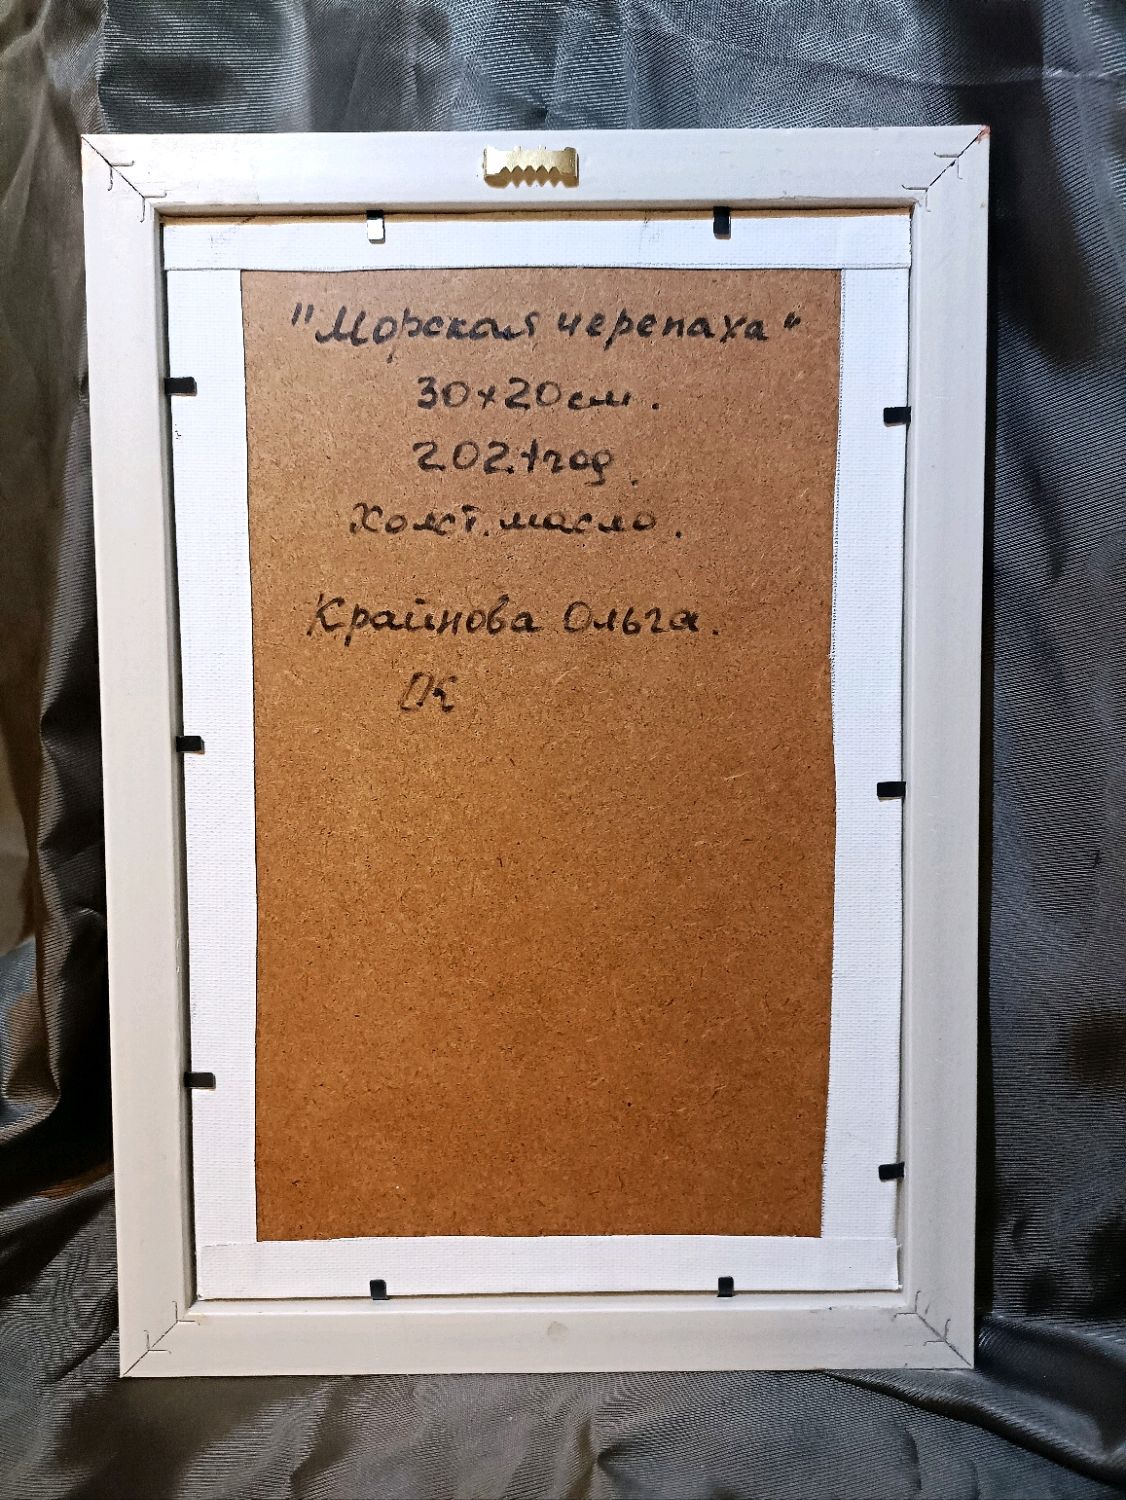 "Морская черепаха"
30×20см.
2021год.
Холст, масло.
Крайнова Ольга.
ОК